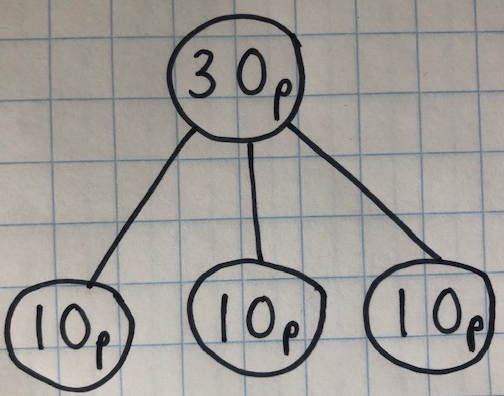 30p
10p 10p 10p